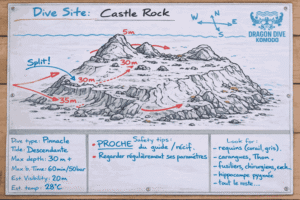 Dive Site: Castle Rock
N
W
E
S
DRAGON DIVE
KOMODO
5m
Split!
30m
30m
35m
Dive type: Pinnacle
Tide: Descendante
Max depth: 30m+
Max h. Time: 60min/50bar
Est Visibility: 20m
Est temp: 28°C
Safety tips:
• PROCHE du guide / récif.
• Regarder régulièrement ses paramètres
Look for:
- requins (corail, gris).
- carangues, Thon.
- fusiliers, chirurgiens, nek
- hippocampe pygmée
- tout le reste...